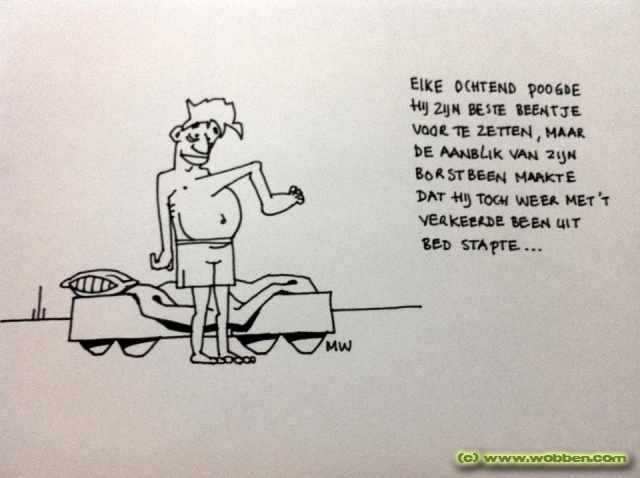 ELKE OCHTEND POOGDE
HIJ ZIJN BESTE BEENTJE
VOOR TE ZETTEN, MAAR
DE AANBLIK VAN ZIJN
BORSTBEEN MAAKTE
DAT HIJ TOCH WEER MET 'T
VERKEERDE BEEN UIT
BED STAPTE...
MW
(c) www.wobben.com